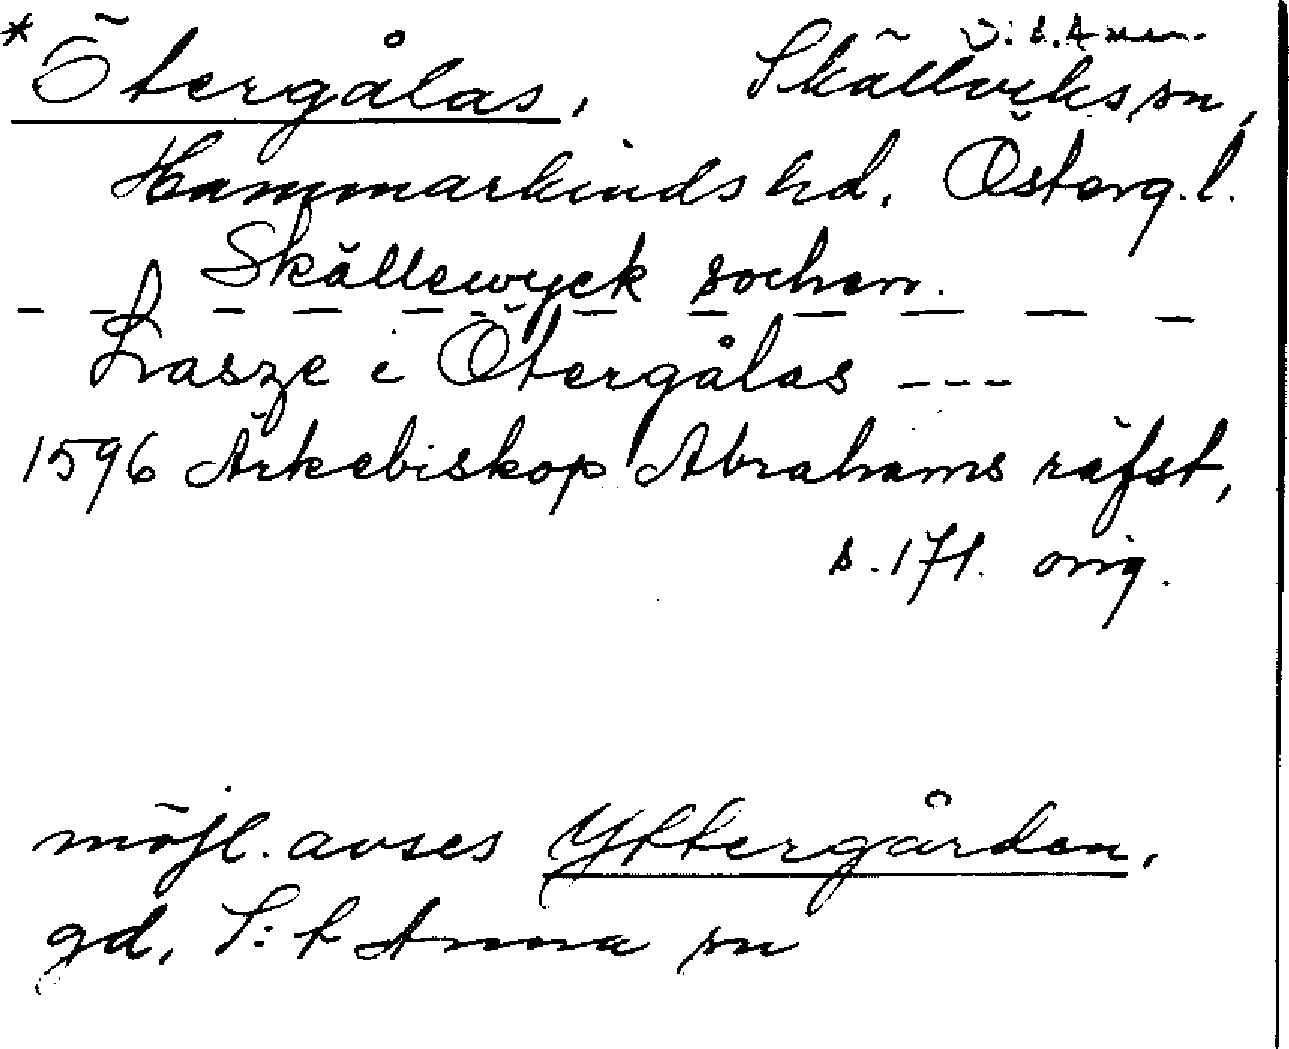 * Ötergålas, Skällviks sn,
Hammarkinds hd, Österg.l.
Skällewyck sochen.
– – – – – – – – – – –
Lasze i Ötergålas ---
1596 Ärkebiskop Abrahams räfst,
s. 171. orig.
möjl. avses Yttergården,
gd, S:t Anna sn